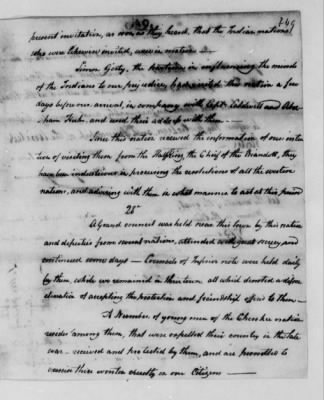 249
present invitation, as soon as they heard, that the Indian nations
who were likewise invited, were in motion
Simon Girty, the in influencing the minds
of the Indians to our prejudice, had visited this nation a few
days before our arrival, in company with Capt. Caldwell and Abra-
ham Kuhn, and used their address with them
Since this nation received the information of our inten-
tion of visiting them from the Halfking, the Chief of the Wyandotts, they
have been industrious in procuring the resolutions of all the western
nations, and advising with them in what manner to act at this period
A Grand council was held near this town by this nation
and deputies from several nations, attended with great secrecy and
continued some days — Councils of Inferior note were held daily
by them, while we remained in their town all which denoted a
of accepting the protection and friendship offered to them —
A Number of young men of the Cherokee nation
reside among them, that were expelled their country in the late
war — received and protected by them, and are permitted to
exercise their wonton cruelty on our Citizens —